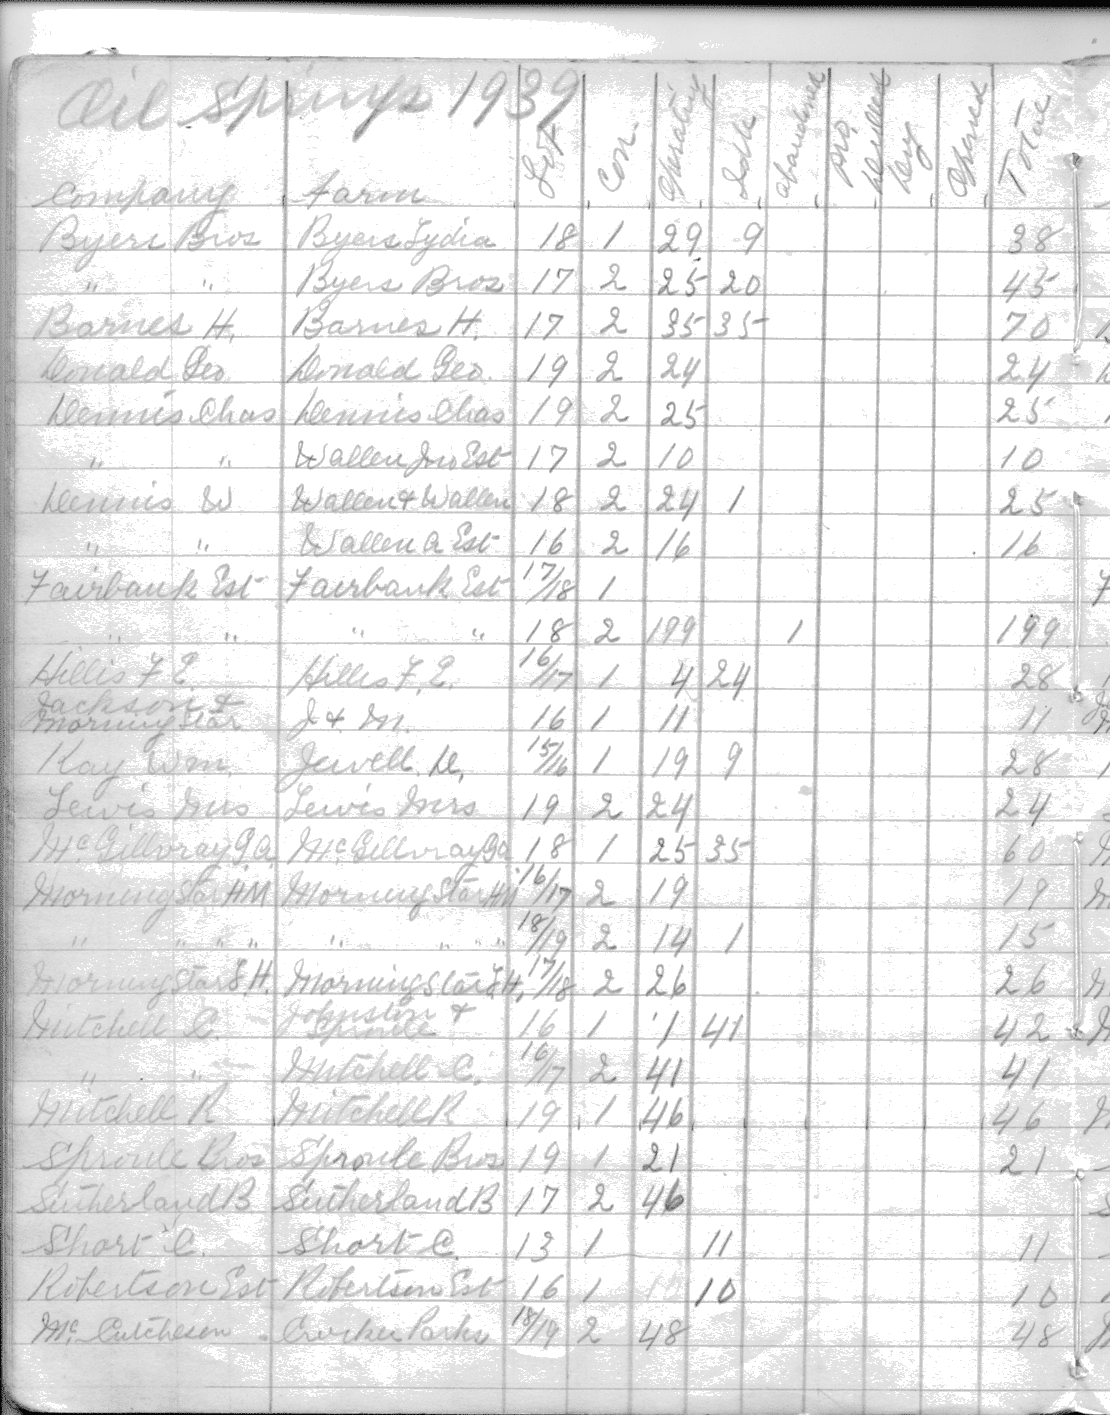 Oil Springs 1939
Company Farm Lot Con. Operating Idle abandoned Pro. Drilled Dry Opened Total
Byers Bros Byers Lydia 18 1 29 9 38
" " Byers Bros 17 2 25 20 45
Barnes H. Barnes H. 17 2 35 35 70
Donald Geo. Donald Geo. 19 2 24 24
Dennis Chas Dennis Chas 19 2 25 25
" " Wallen Jno Est 17 2 10 10
Dennis W Wallen & Wallen 18 2 24 1 25
" " Wallen A Est 16 2 16 16
Fairbank Est Fairbank Est 17/18 1
" " " " 18 2 199 1 199
Hillis F. E. Hillis F. E. 16/17 1 4 24 28
Jackson & Morningstar J & M. 16 1 11 11
Kay Wm. Jewell D. 15/16 1 19 9 28
Lewis Mrs Lewis Mrs 19 2 24 24
McGillvray G.A. McGillvray Ga 18 1 25 35 60
Morningstar HM Morningstar HM 16/17 2 19 19
" " " " " " " " 18/19 2 14 1 15
Morningstar S.H. Morningstar S.H. 17/18 2 26 26
Mitchell C. Johnston & Sproule 16 1 1 41 42
" " Mitchell C. 16/17 2 41 41
Mitchell R Mitchell R 19 1 46 46
Sproule Bros Sproule Bros 19 1 21 21
Sutherland B Sutherland B 17 2 46
Short C. Short C. 13 1 11 11
Robertson Est Robertson Est 16 1 10 10
Mc Cutcheon Crocker Parks 18/19 2 48 48